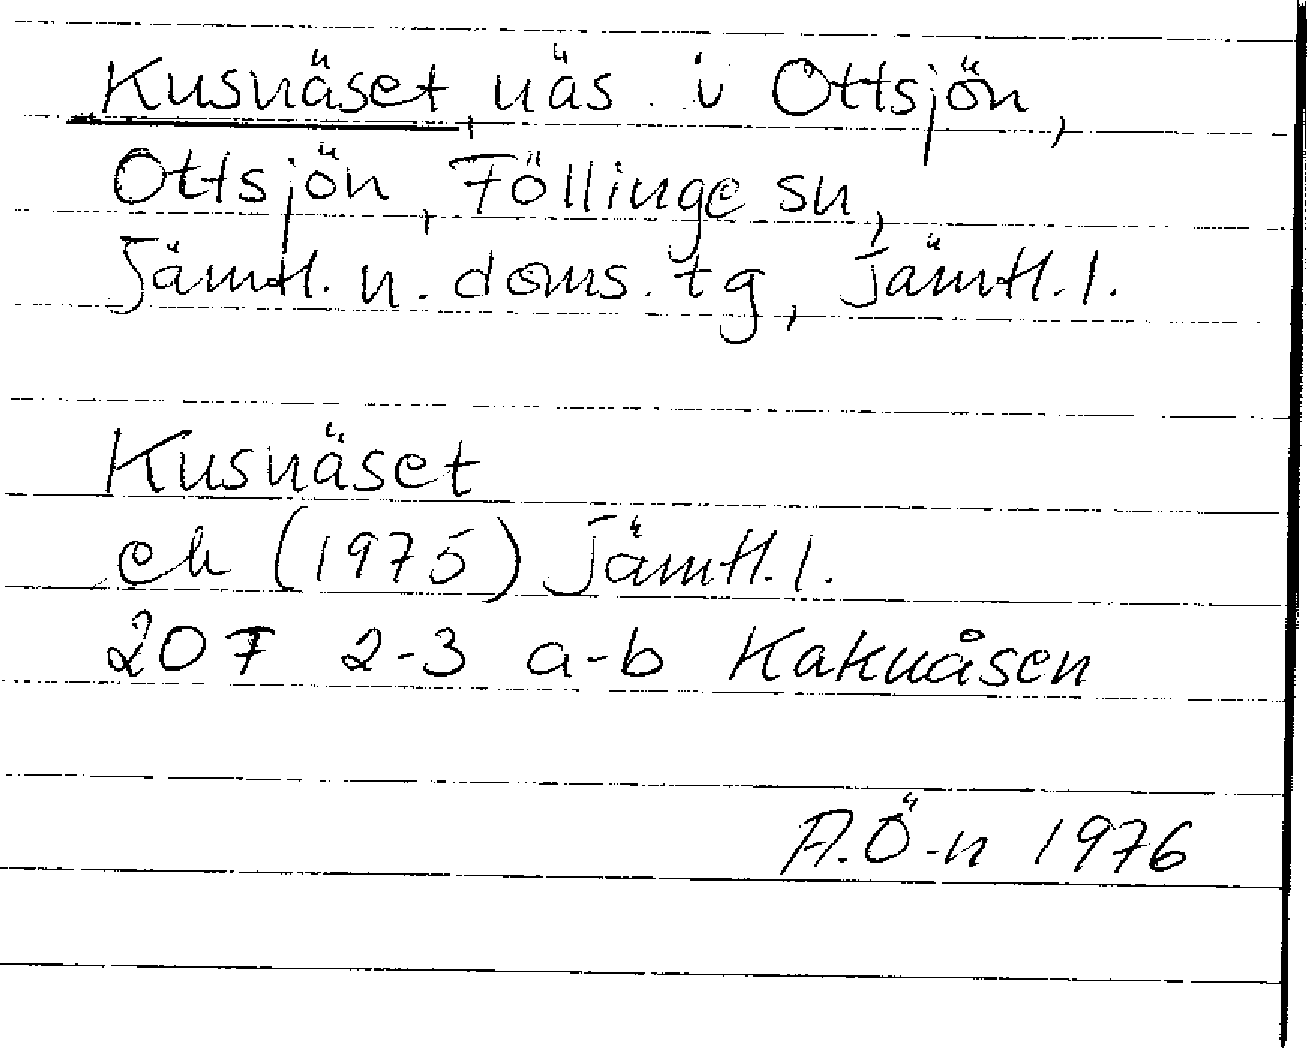 Kusnäset, näs i Ottsjön,
Ottsjön, Föllinge sn,
Jämtl. n. doms. tg, Jämtl. l.
Kusnäset
ek (1975) Jämtl. l.
20F 2-3 a-b Kakuåsen
A.Ö-n 1976